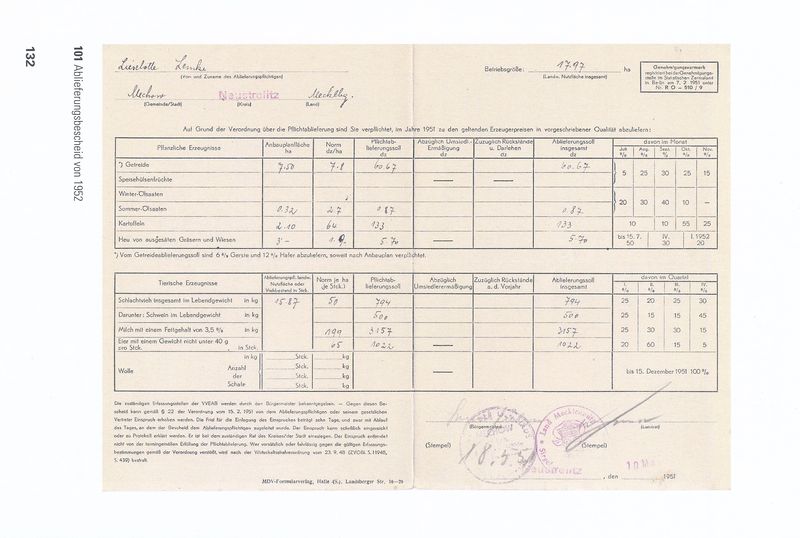 132
101 Ablieferungsbescheid von 1952
Lieselotte Lemke
(Vor- und Zuname des Ablieferungspflichtigen)
Betriebsgröße: 17.97 ha
(Landw. Nutzfläche insgesamt)
Genehmigungsvermerk
registriert bei der Genehmigungs-
stelle im Statistischen Zentralamt
in Berlin am 7. 2. 1951 unter
Nr. R O - 510 / 9
Mechow Neustrelitz Mecklbg.
(Gemeinde/Stadt) (Kreis) (Land)
Auf Grund der Verordnung über die Pflichtablieferung sind Sie verpflichtet, im Jahre 1951 zu den geltenden Erzeugerpreisen in vorgeschriebener Qualität abzuliefern:
Pflanzliche Erzeugnisse Anbauplanfläche ha Norm dz/ha Pflichtab-lieferungssoll dz Abzüglich Umsiedl.-Ermäßigung dz Zuzüglich Rückstände u. Darlehen dz Ablieferungssoll insgesamt dz davon im Monat
Juli % Aug. % Sept. % Okt. % Nov. %
*) Getreide 7.50 7.8 60.67 60.67 5 25 30 25 15
Speisehülsenfrüchte — —
Winter-Ölsaaten
Sommer-Ölsaaten 0.32 2.7 0.87 0.87 20 30 40 10 —
Kartoffeln 2.10 64 133 133 10 10 55 25
Heu von ausgesäten Gräsern und Wiesen 3.- 1.9 5.70 — 5.70 bis 15. 7. 50 IV. 30 I. 1952 20
*) Vom Getreideablieferungssoll sind 6 % Gerste und 12 % Hafer abzuliefern, soweit nach Anbauplan verpflichtet.
Tierische Erzeugnisse Ablieferungspfl. landw. Nutzfläche oder Viehbestand in Stck. Norm je ha (je Stck.) Pflichtab-lieferungssoll Abzüglich Umsiedlerermäßigung Zuzüglich Rückstände a. d. Vorjahr Ablieferungssoll insgesamt davon im Quartal
I. % II. % III. % IV. %
Schlachtvieh insgesamt im Lebendgewicht in kg 15.87 50 794 794 25 20 25 30
Darunter: Schwein im Lebendgewicht in kg 500 500 25 15 15 45
Milch mit einem Fettgehalt von 3,5 % in kg 199 3157 3157 25 30 30 15
Eier mit einem Gewicht nicht unter 40 g pro Stck. in Stck. 65 1022 — 1022 20 60 15 5
in kg Stck. kg
Wolle Anzahl der Schafe Stck. kg — bis 15. Dezember 1951 100 %
Stck. kg
Stck. kg
Die zuständigen Erfassungsstellen der VVEAB werden durch den Bürgermeister bekanntgegeben. — Gegen diesen Be-
scheid kann gemäß § 22 der Verordnung vom 15. 2. 1951 von dem Ablieferungspflichtigen oder seinem gesetzlichen
Vertreter Einspruch erhoben werden. Die Frist für die Einlegung des Einspruches beträgt zehn Tage, und zwar mit Ablauf
des Tages, an dem der Bescheid dem Ablieferungspflichtigen zugeleitet wurde. Der Einspruch kann schriftlich eingereicht
oder zu Protokoll erklärt werden. Er ist bei dem zuständigen Rat des Kreises/der Stadt einzulegen. Der Einspruch entbindet
nicht von der termingemäßen Erfüllung der Pflichtablieferung. Wer vorsätzlich oder fahrlässig gegen die gültigen Erfassungs-
bestimmungen gemäß der Verordnung verstößt, wird nach der Wirtschaftsstrafverordnung vom 23. 9. 48 (ZVOBl. S. 11948,
S. 439) bestraft.
(Bürgermeister) (Landrat)
(Stempel) (Stempel)
18.5.51
Neustrelitz, den 10. Mai 1951
MDV-Formularverlag, Halle (S.), Landsberger Str. 16—26